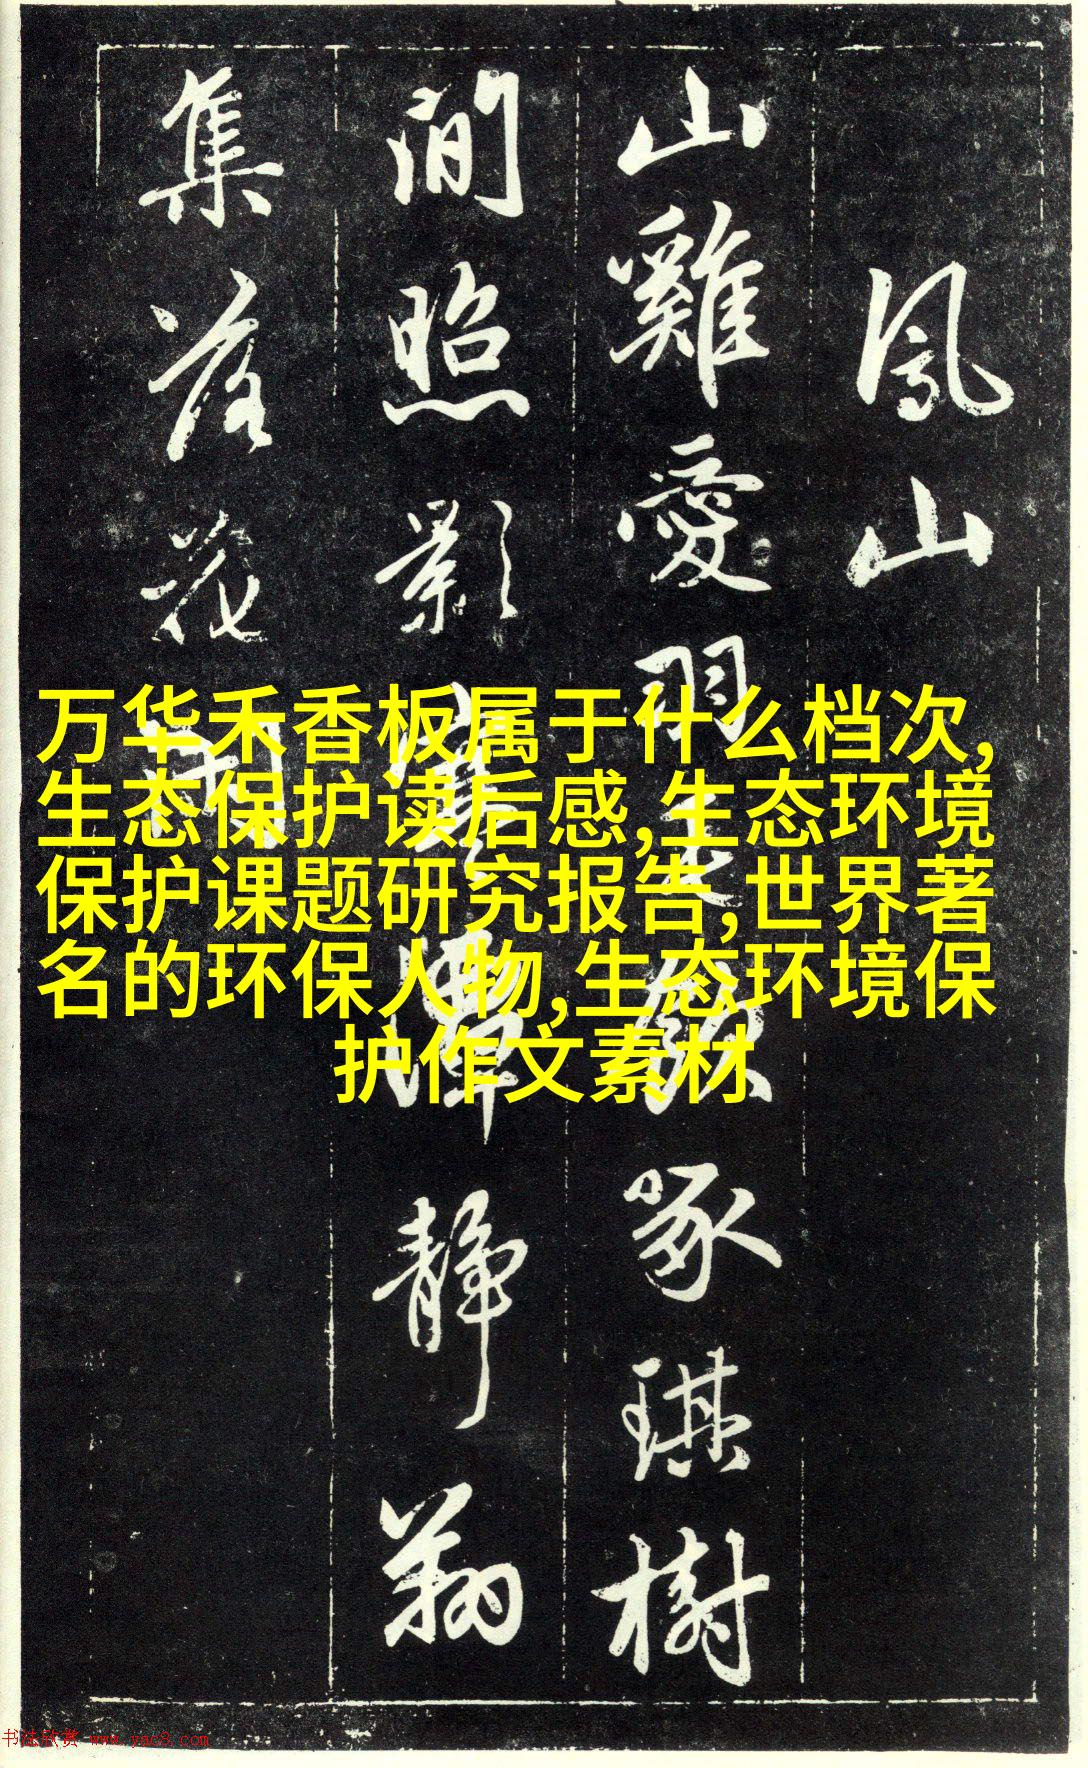 鳳山
山雞愛羽毛飲啄琪樹
間照影寒潭靜翔
集落花
万华禾香板属于什么档次,
生态保护读后感,生态环境
保护课题研究报告,世界著
名的环保人物,生态环境保
护作文素材
书法欣赏 www.yac8.com